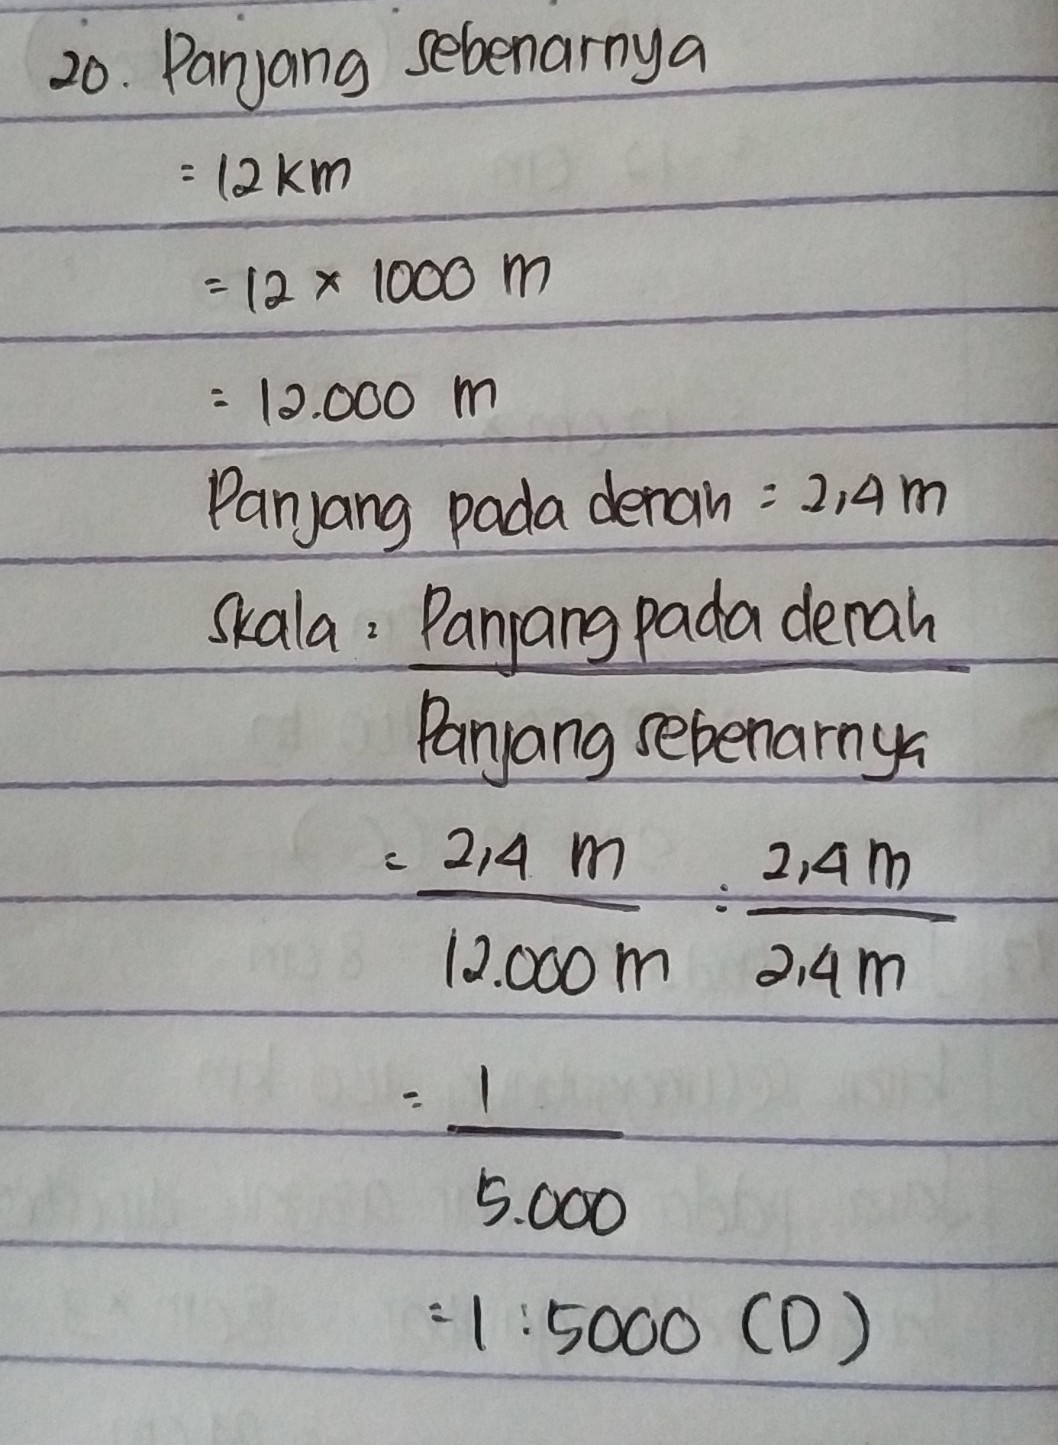 20. Panjang sebenarnya
= 12 km
= 12 × 1000 m
= 12.000 m
Panjang pada denah = 2,4 m
Skala = Panjang pada denah
Panjang sebenarnya
= 2,4 m : 2,4 m
12.000 m 2,4 m
= 1
5.000
= 1 : 5000 (D)